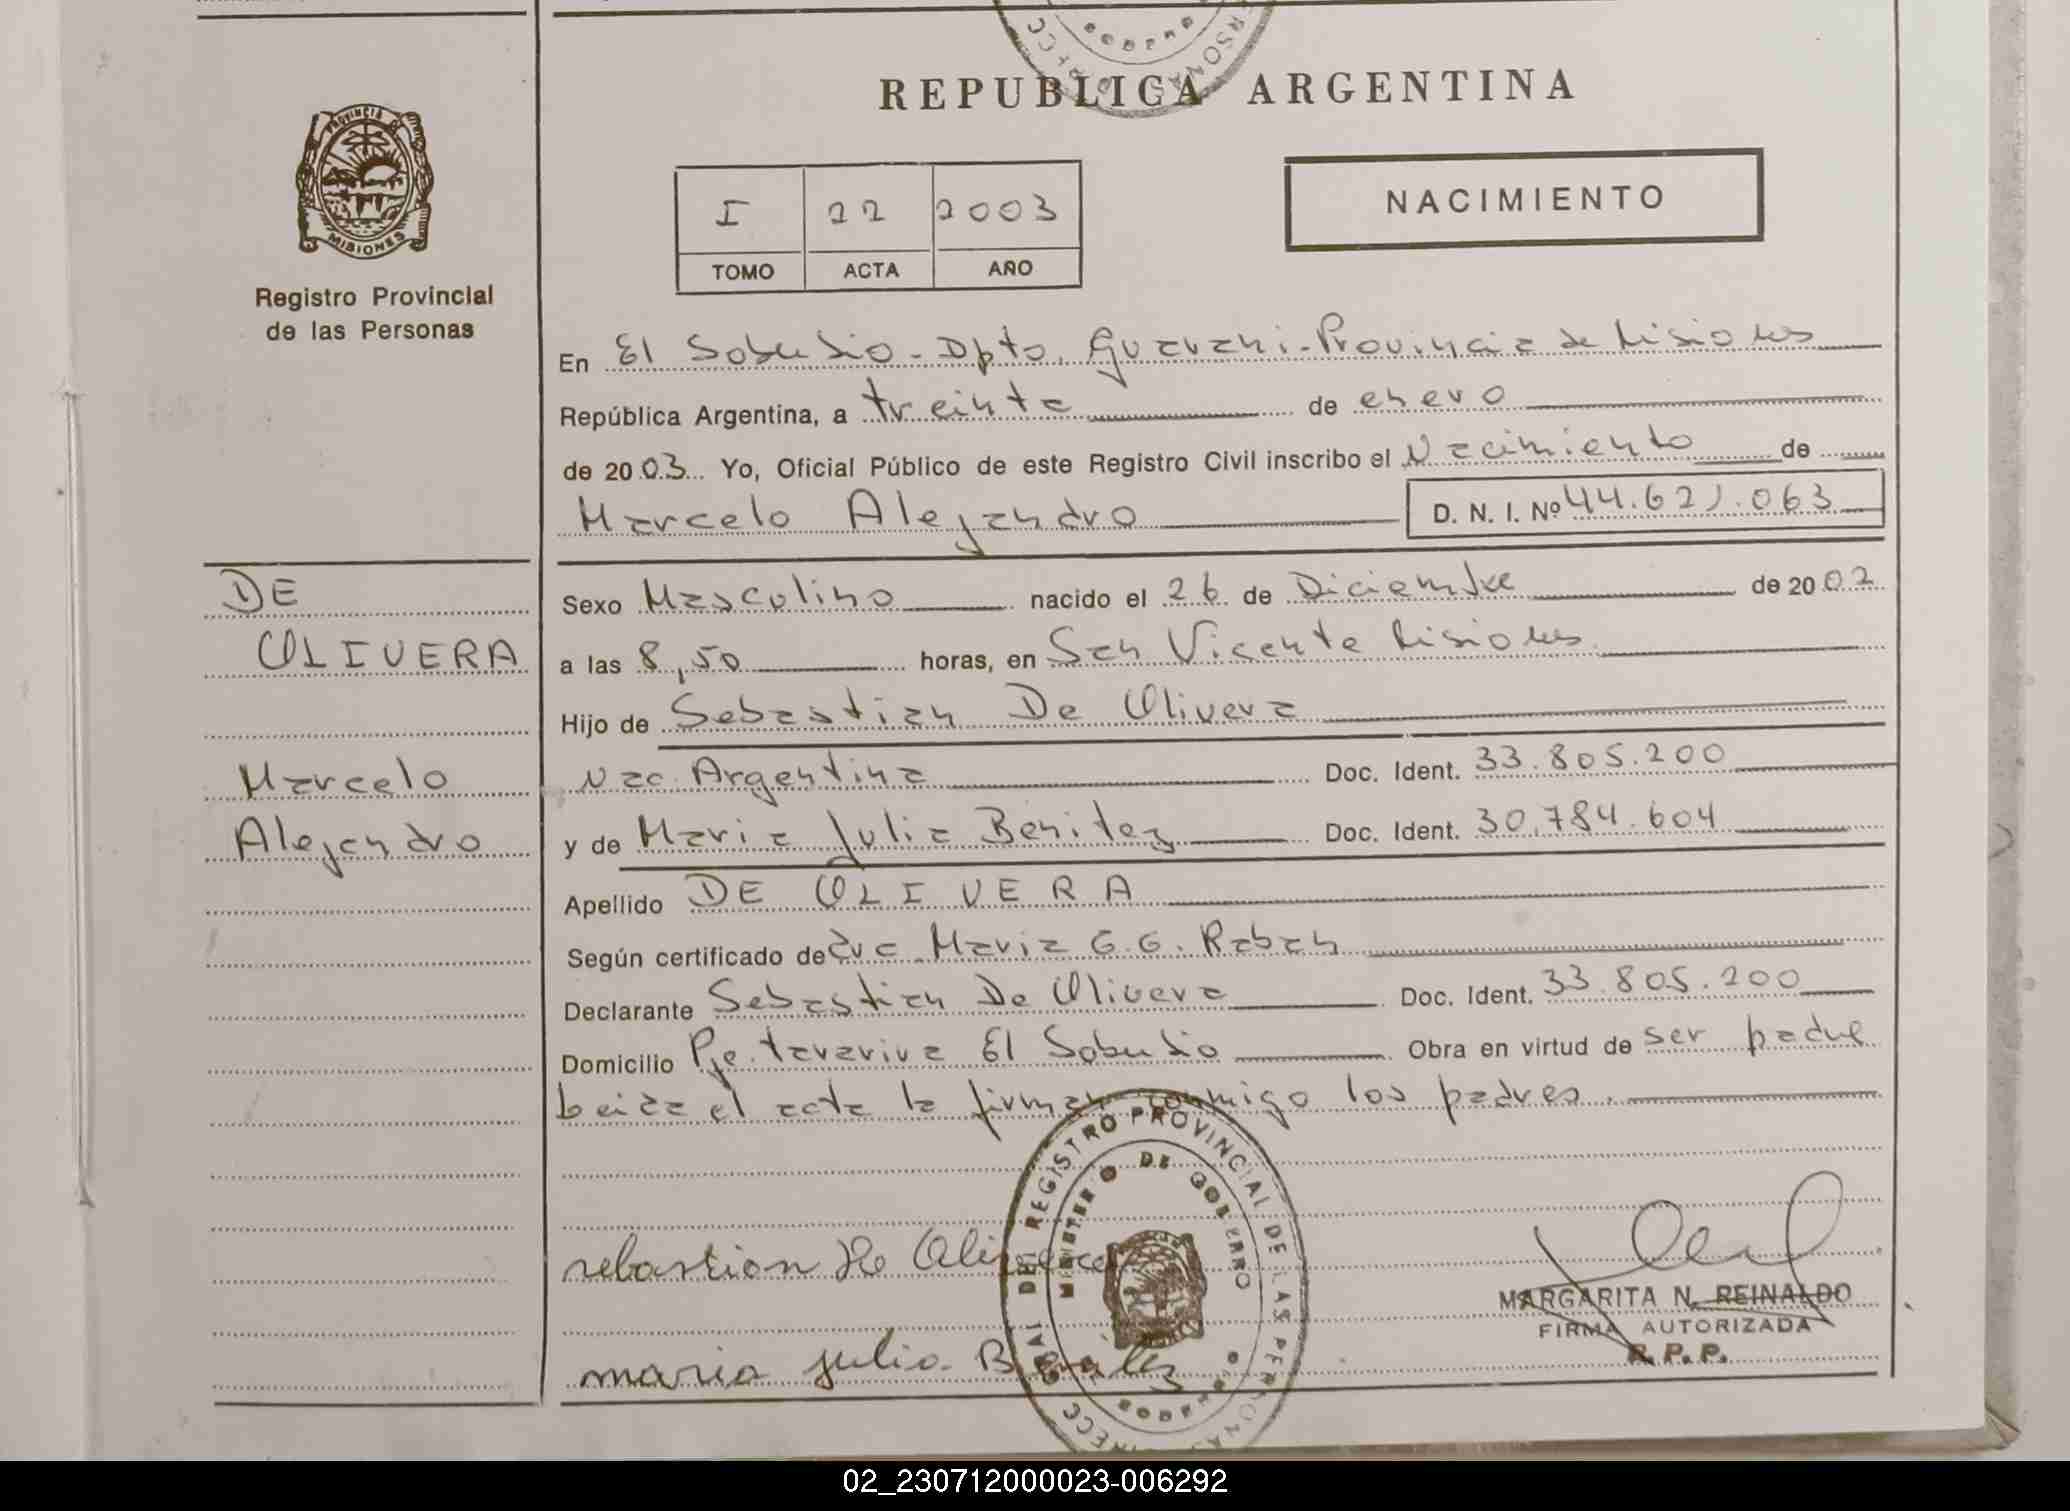 REPUBLICA ARGENTINA
PROVINCIA DE
MISIONES
Registro Provincial
de las Personas
I 22 2003
TOMO ACTA AÑO
NACIMIENTO
En El Soberbio - Dpto. Guarani - Provincia de Misiones
República Argentina, a treinta de enero
de 2003 Yo, Oficial Público de este Registro Civil inscribo el Nacimiento de
Marcelo Alejandro D. N. I. Nº 44.621.063
DE
OLIVERA
Marcelo
Alejandro
Sexo Masculino nacido el 26 de Diciembre de 2002
a las 8,50 horas, en San Vicente Misiones
Hijo de Sebastian De Olivera
Nac. Argentina Doc. Ident. 33.805.200
y de Maria Julia Benitez Doc. Ident. 30.784.604
Apellido DE OLIVERA
Según certificado de Dra Maria G. G. Raban
Declarante Sebastian De Olivera Doc. Ident. 33.805.200
Domicilio Pje. Tararira El Soberbio Obra en virtud de ser padre
Leida el acta la firman conmigo los padres.
sebastian de Olivera
maria julia Benitez
REGISTRO PROVINCIAL DE LAS PERSONAS
MINISTERIO DE GOBIERNO
MARGARITA N. REINALDO
FIRMA AUTORIZADA
R. P. P.
02_230712000023-006292